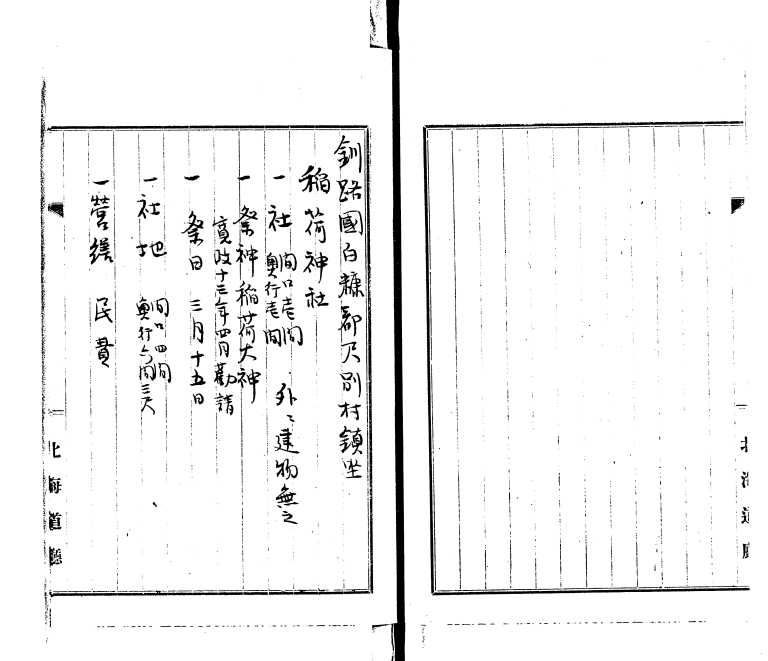 釧路國白糠郡尺別村鎮坐
稲荷神社
一社 間口壱間 奥行壱間 外ニ建物無之
一祭神稲荷大神
寛政十三年四月勧請
一祭日 三月十五日
一社地 間口四間 奥行六間三尺
一営繕 民費
北海道廳
北海道廳